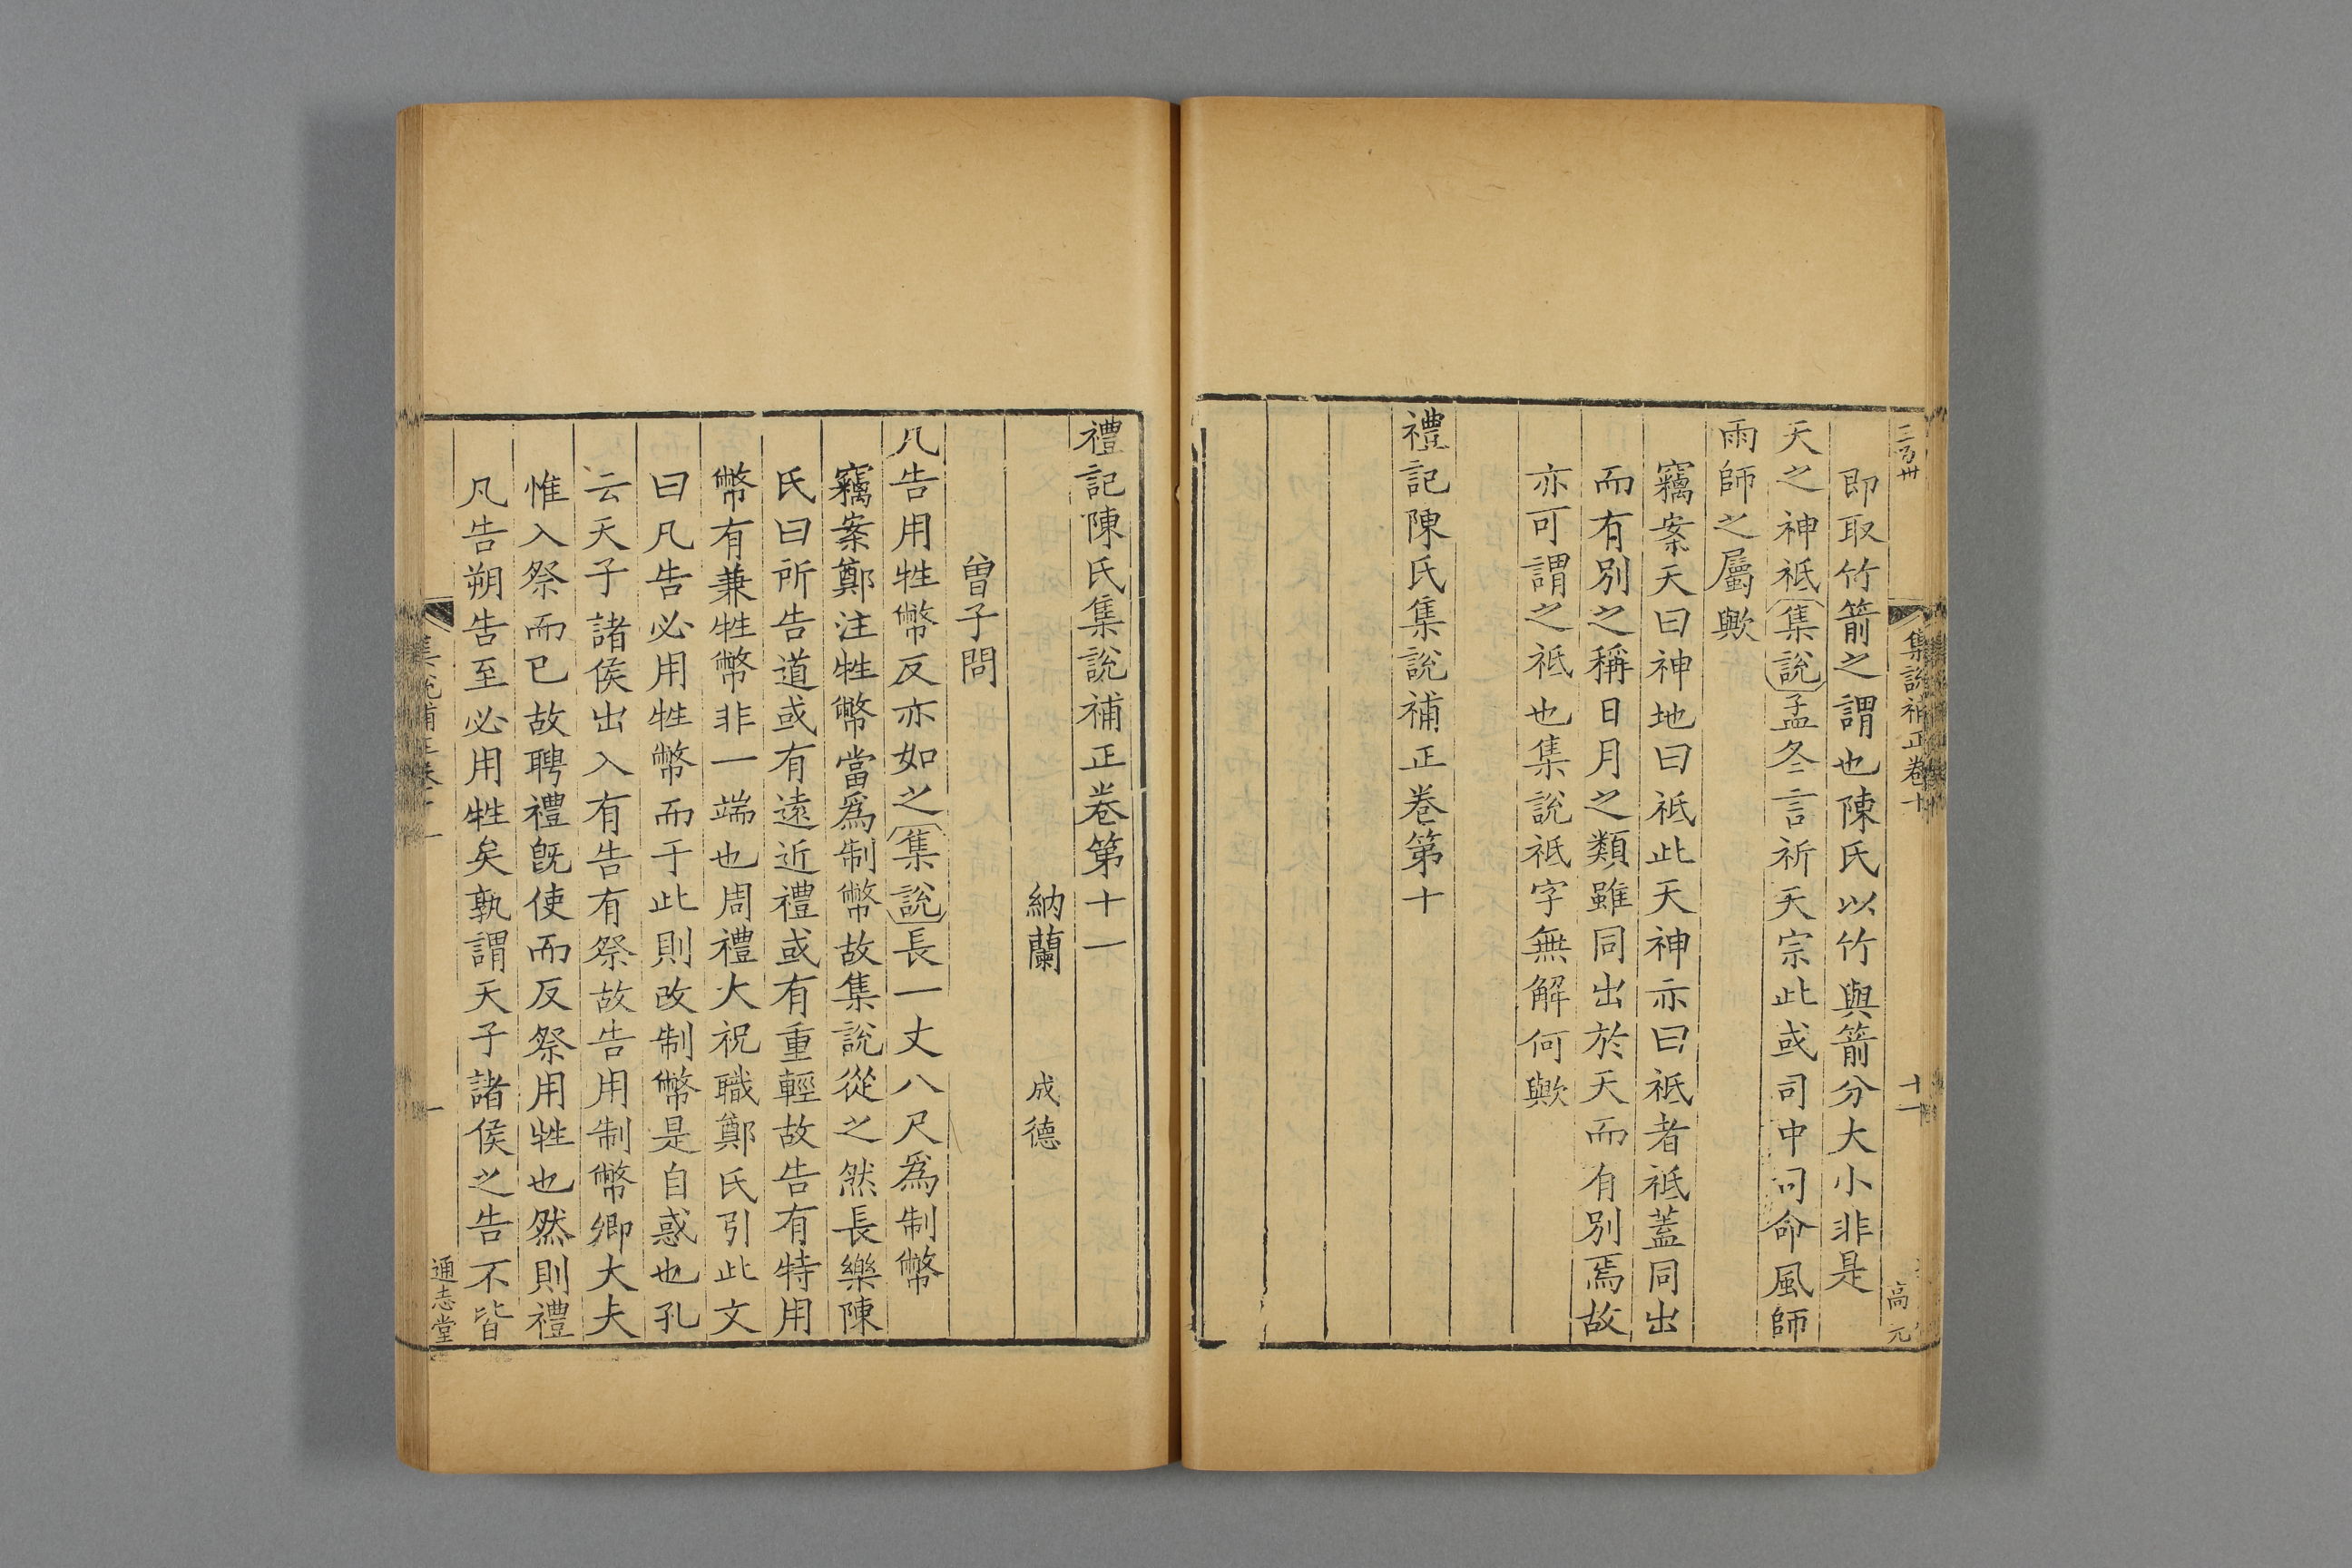 二百卅
集說補正卷十
十一
高元
即取竹箭之謂也陳氏以竹與箭分大小非是
天之神祗集說孟冬言祈天宗此或司中司命風師
雨師之屬歟
竊案天曰神地曰祗此天神亦曰祗者祗蓋同出
而有別之稱日月之類雖同出於天而有別焉故
亦可謂之祗也集說祗字無解何歟
禮記陳氏集說補正卷第十
禮記陳氏集說補正卷第十一
納蘭 成德
曾子問
凡告用牲幣反亦如之集說長一丈八尺爲制幣
竊案鄭注牲幣當爲制幣故集說從之然長樂陳
氏曰所告道或有遠近禮或有重輕故告有特用
幣有兼牲幣非一端也周禮大祝職鄭氏引此文
曰凡告必用牲幣而于此則改制幣是自惑也孔
云天子諸侯出入有告有祭故告用制幣卿大夫
惟入祭而已故聘禮旣使而反祭用牲也然則禮
凡告朔告至必用牲矣孰謂天子諸侯之告不皆
集說補正卷十一
一
通志堂